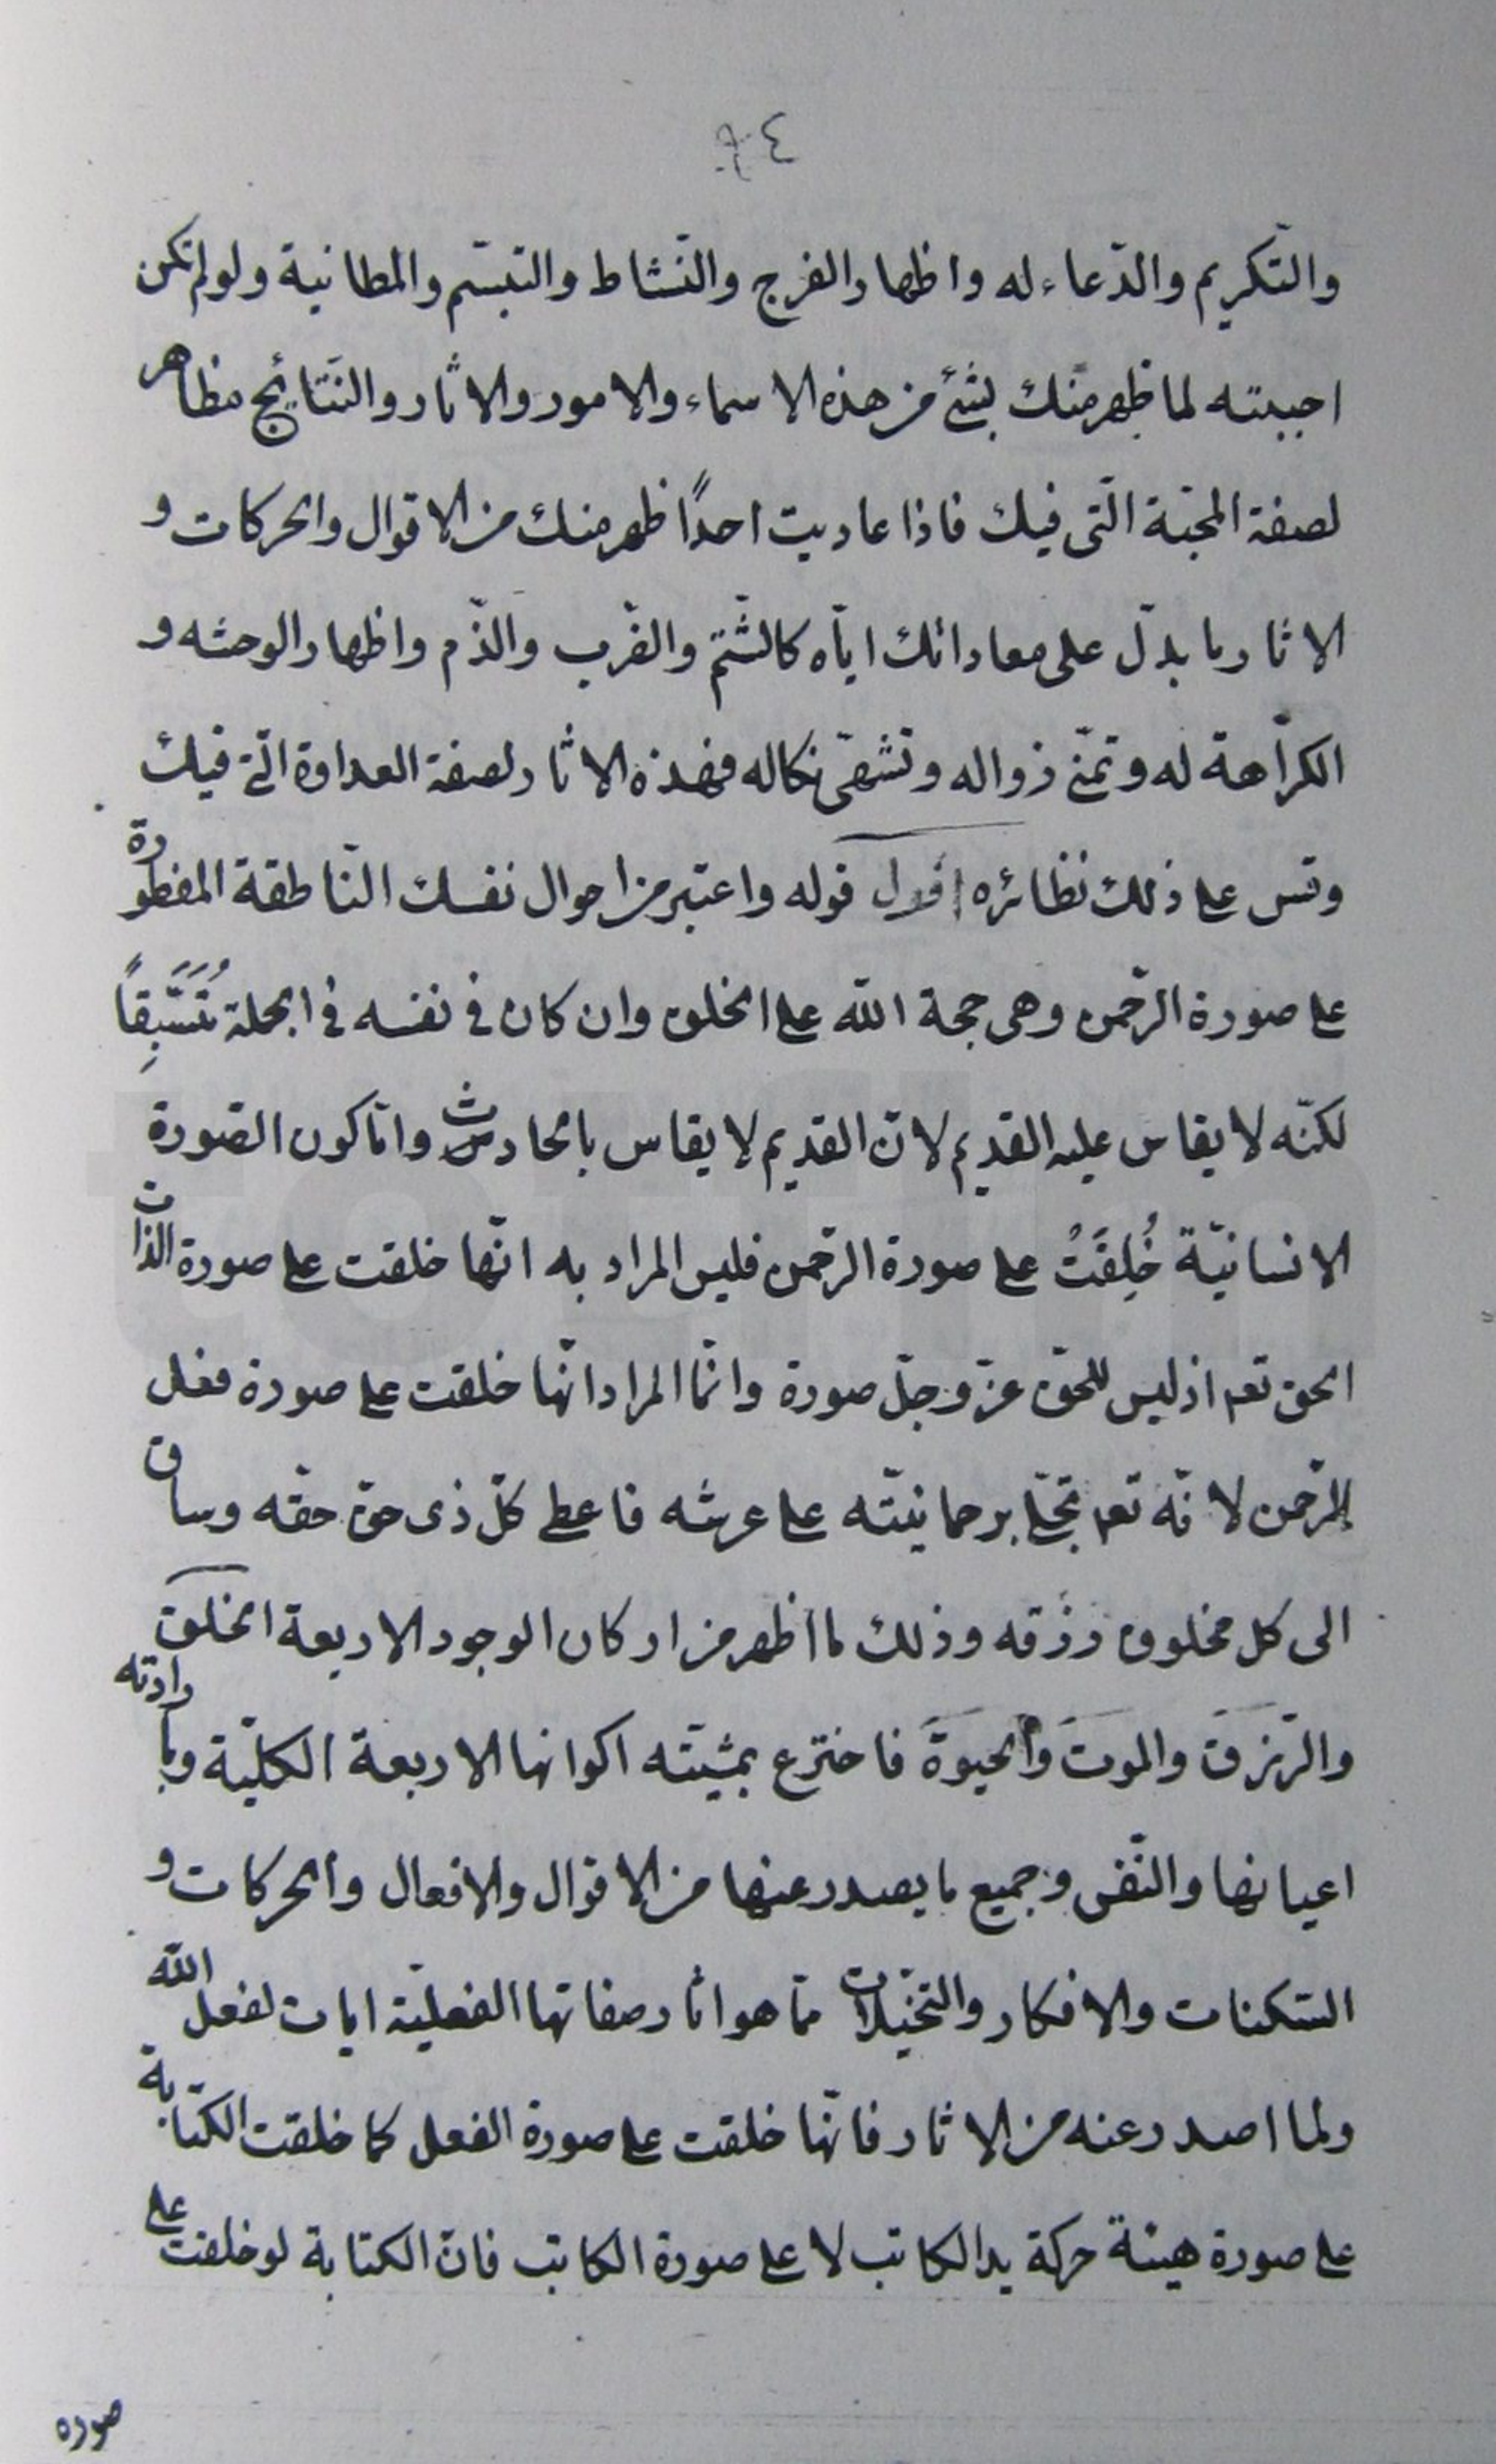 والتّكريم والدّعاء له واظهار الفرح والنّشاط والتبسّم والمطانية ولو لم تكن
احببته لما ظهر منك بشئ من هذه الاسماء والامور والاثار والنّتايج مظاهر
لصفة المحبّة الّتى فيك فاذا عاديت احدًا ظهر منك من الاقوال والحركات و
الاثار ما يدلّ على معاداتك ايّاه كالشّتم والضّرب والذّم واظهار الوحشه و
الكرّاهة له وتمنّى زواله وتشهّى نكاله فهذه الاثار لصفة العداوة الّتى فيك
وقس على ذلك نظائره اقول قوله واعتبر من احوال نفسك النّاطقة المفطورة
على صورة الرّحمن وهى حجة الله على الخلق وان كان فى نفسه فى الجملة مُتَّسِقاً
لكنّه لا يقاس عليه القديم لانّ القديم لا يقاس بالحادث وامّا كون الصّورة
الانسانيّة خُلِقَتْ على صورة الرّحمن فليس المراد به انّها خلقت على صورة الذات
الحق تعم اذ ليس للحقّ عزّ وجلّ صورة وانّما المراد انّها خلقت على صورة فعل
الرّحمن لانّه تعم تجلّى برحمانيّته على عرشه فاعطى كلّ ذى حقّ حقّه وساق
الى كل مخلوق رزقه وذلك لما اظهر من اركان الوجود الاربعة الخلق
والرّزقَ والموتَ والحيوةَ فاخترع بمشيّته اكوانها الاربعة الكليّة وبارادته
اعيانها والنّفس وجميع ما يصدر عنها من الاقوال والافعال والحركات و
السّكنات والافكار والتخيّلات ممّا هو اثار صفاتها الفعليّة ايات لفعل الله
ولما اصدر عنه من الاثار فانّها خلقت على صورة الفعل كما خلقت الكتابة
على صورة هيئة حركة يد الكاتب لا على صورة الكاتب فانّ الكتابة لو خلقت على
صوره